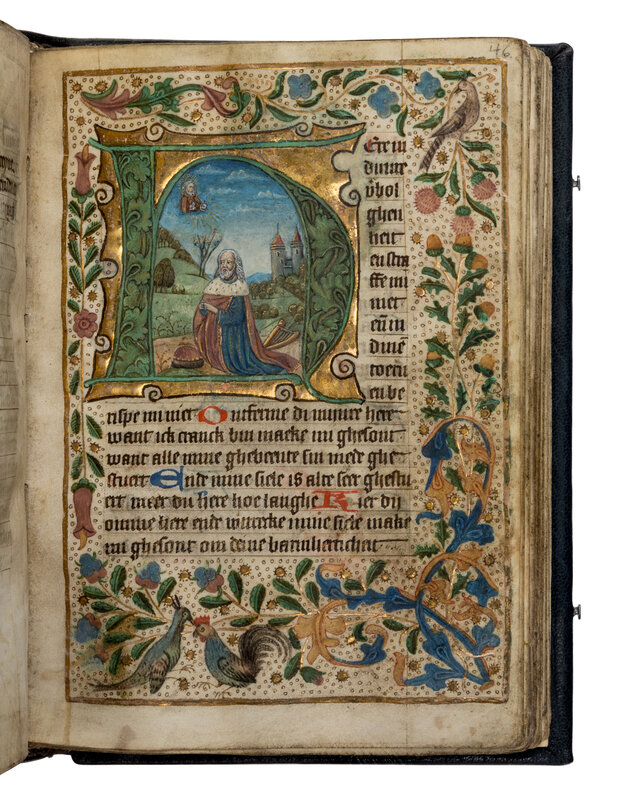 46
H Ere in
dinre
v̄bol
ghen
heit
en stra
ffe mi
niet
en̄ in
dinē
toern
en be
rispe mi niet Ontferme di minre here
want ick cranck bin maeke mi ghesont
want alle mine ghebeente sin mede ghe
stuert Ende mine siele is alte seer ghestu
ert meer du here hoe langhe Kier dij
omme here ende wtrecke mine siele make
mi ghesont om deine barmherticheit